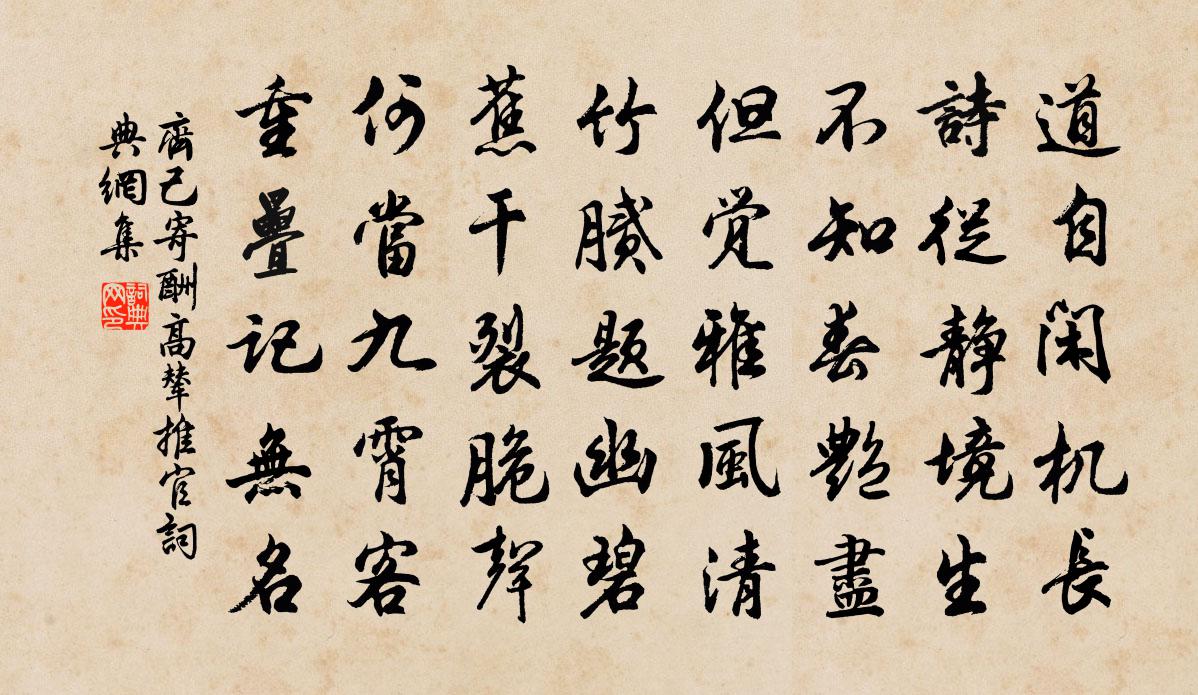 道自閑机長
詩從静境生
不知春艷盡
但觉雅風清
竹膩题幽碧
蕉干裂脆聲
何當九霄客
重疊记無名
齊己寄酬高輦推官詞
典網集
詞典网印